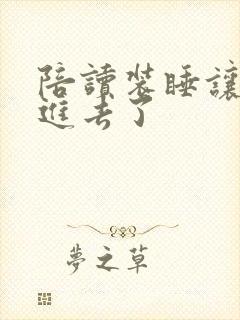 陪讀裝睡讓
進去了
夢之草